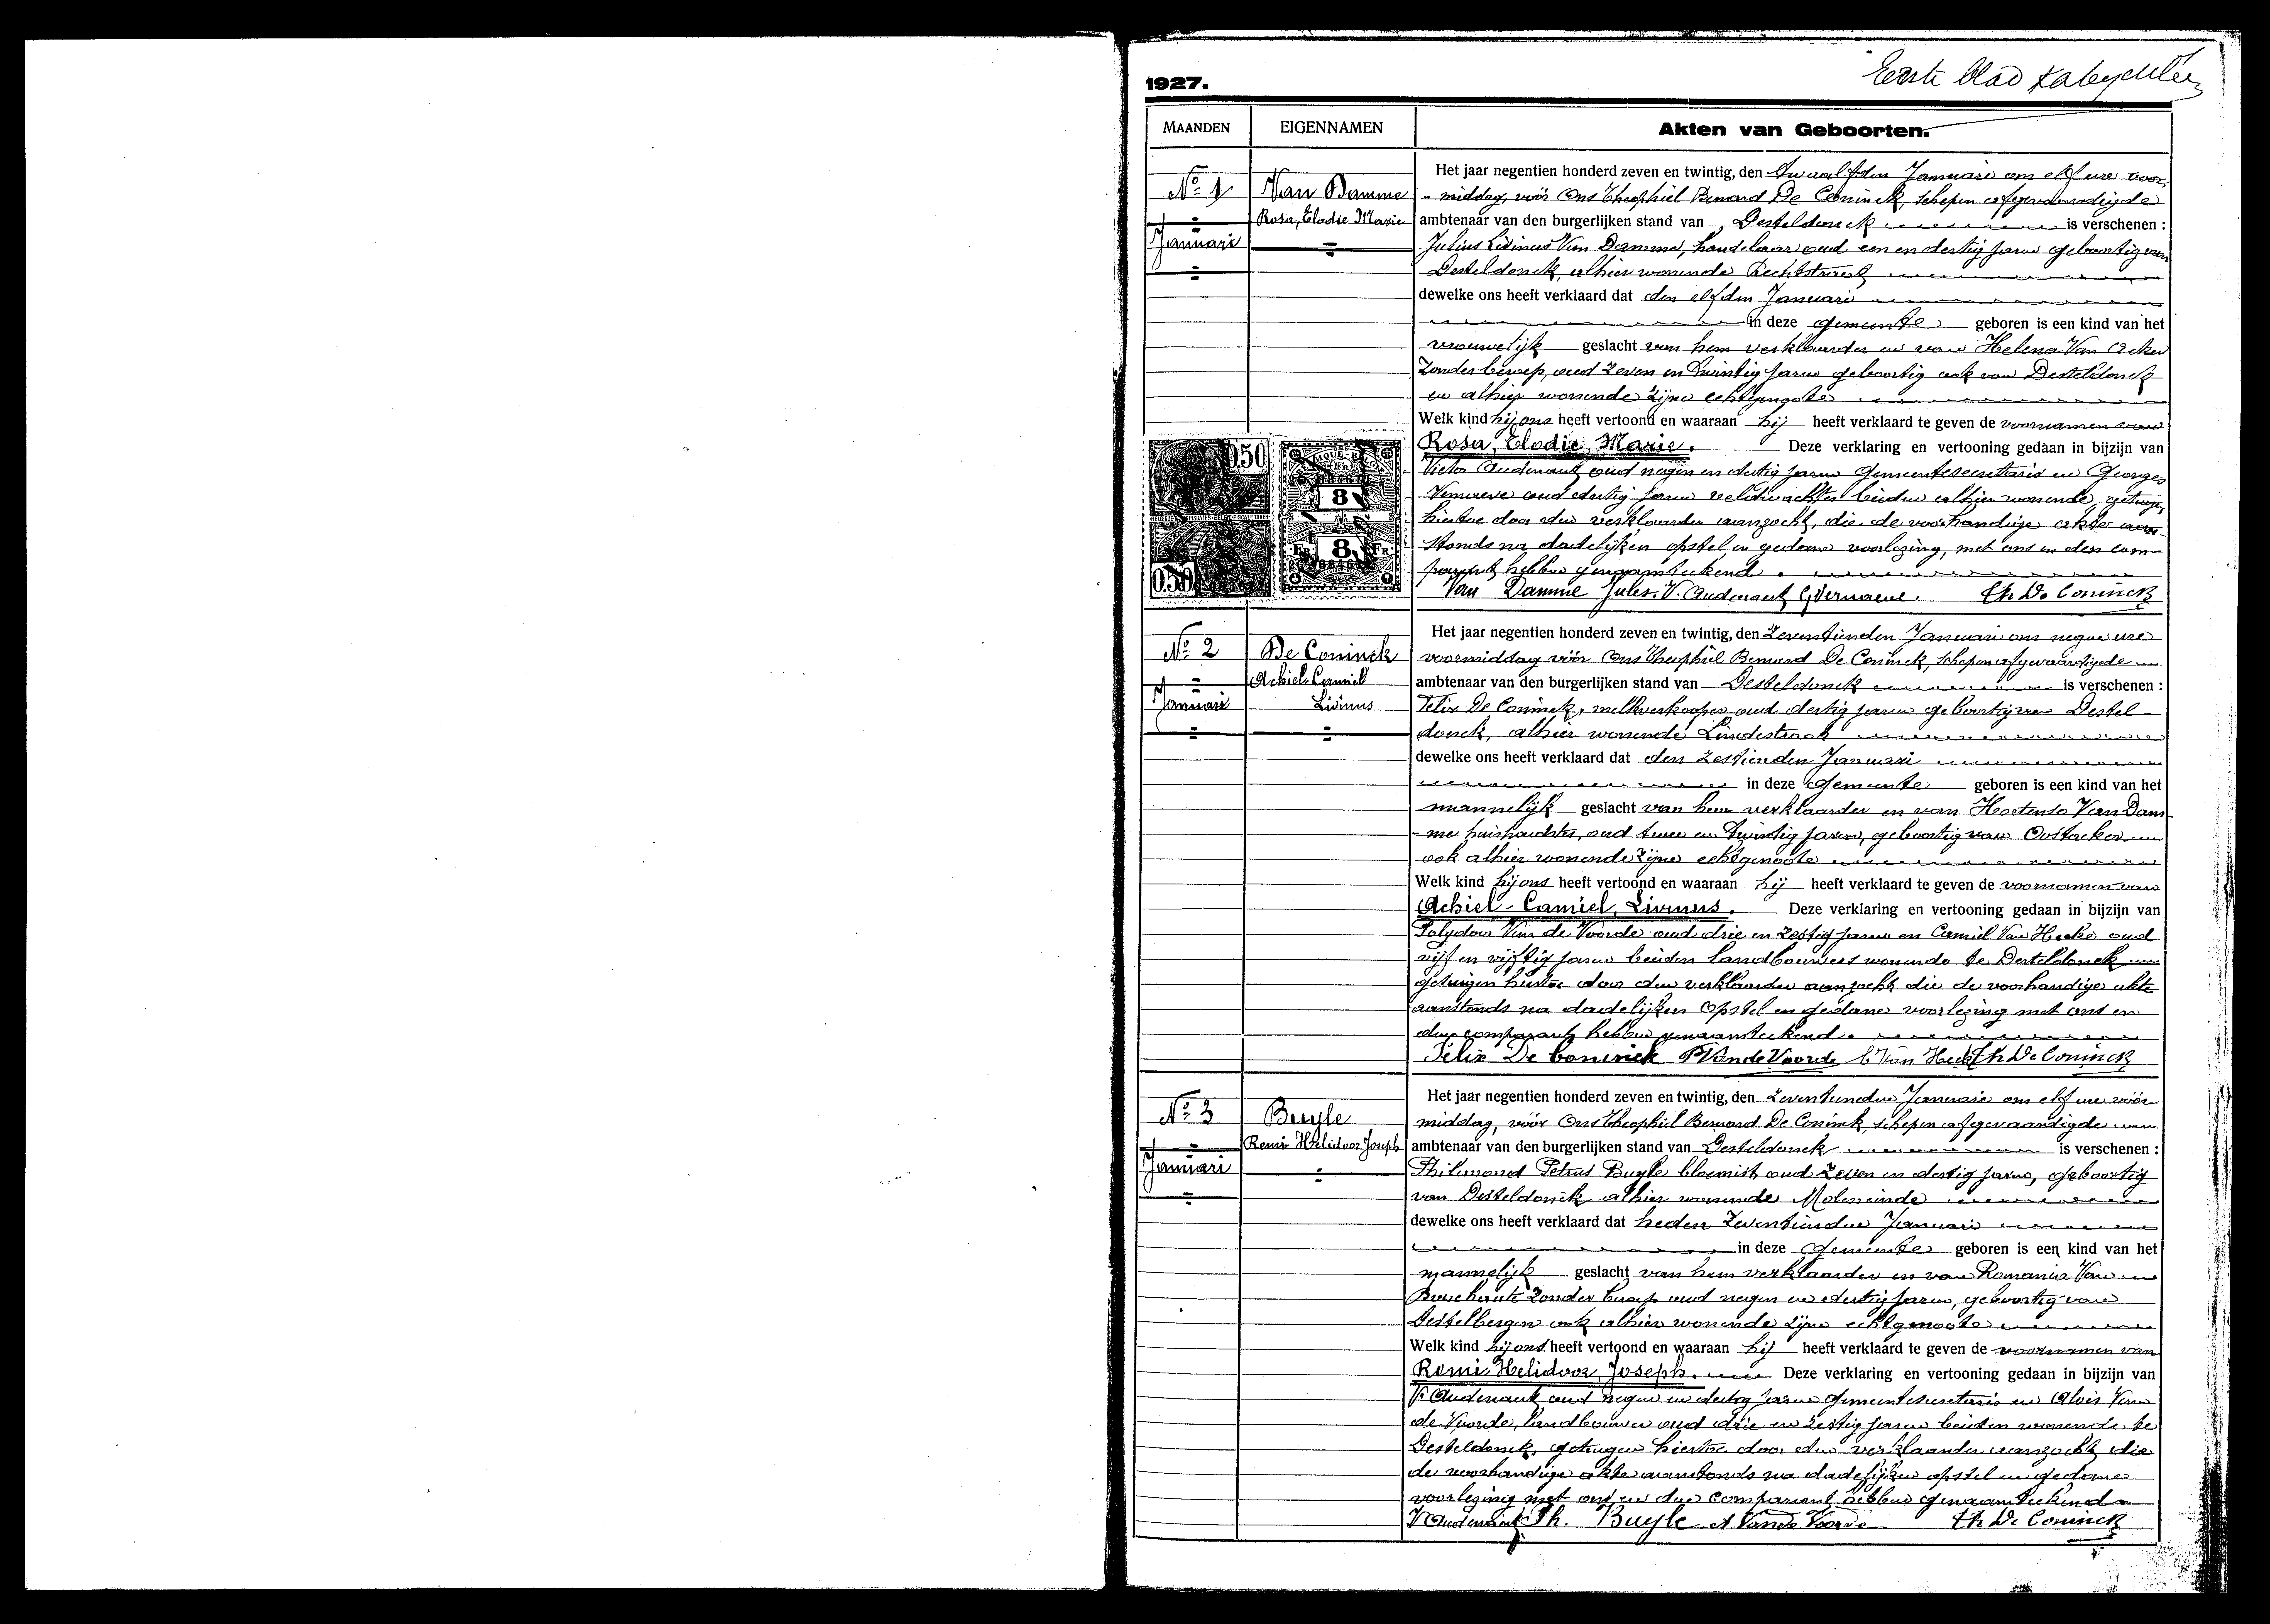 Eerste blad
1927.
MAANDEN EIGENNAMEN Akten van Geboorten.
No 1
Januari
Van Damme
Rosa, Elodie Marie
Het jaar negentien honderd zeven en twintig, den twaalfden Januari om elf ure voor
- middag, vóór Ons Theophiel Bernard De Coninck, schepen afgevaardigde
ambtenaar van den burgerlijken stand van Desteldonck is verschenen :
Julius Livinus Van Damme, handelaar oud een en dertig jaren geboortig van
Desteldonck, alhier wonende Rechtstraat
dewelke ons heeft verklaard dat den elfden Januari
in deze gemeente geboren is een kind van het
vrouwelijk geslacht van hem verklaarder en van Helena Van Acker
zonder beroep, oud zeven en twintig jaren geboortig ook van Desteldonck
en alhier wonende zijne echtgenote
Welk kind hij ons heeft vertoond en waaraan hij heeft verklaard te geven de voornamen van
Rosa, Elodie, Marie. Deze verklaring en vertooning gedaan in bijzijn van
Victor Audenaert oud negen en dertig jaren gemeentesecretaris en Georges
Vernaeve oud dertig jaren veldwachter beiden alhier wonende, getuigen
hiertoe door den verklaarder aanzocht, die de voorhandige akte aan-
stonds na dadelijken opstel en gedane voorlezing, met ons en den com-
parant hebben genaamteekend.
Van Damme Jules. V. Audenaert G Vernaeve. Th De Coninck
0.50
0.50
8
8
FR FR
No 2
Januari
De Coninck
Achiel Camiel
Livinus
Het jaar negentien honderd zeven en twintig, den zeventienden Januari om negen ure
voormiddag vóór Ons Theophiel Bernard De Coninck, schepen afgevaardigde
ambtenaar van den burgerlijken stand van Desteldonck is verschenen :
Felix De Coninck, melkverkooper oud dertig jaren geboortig van Destel-
donck, alhier wonende Lindestraat
dewelke ons heeft verklaard dat den zestienden Januari
in deze gemeente geboren is een kind van het
mannelijk geslacht van hem verklaarder en van Hortense Van Dam-
- me huishoudster, oud twee en twintig jaren, geboortig van Oostacker
ook alhier wonende zijne echtgenoote
Welk kind hij ons heeft vertoond en waaraan hij heeft verklaard te geven de voornamen van
Achiel - Camiel, Livinus. Deze verklaring en vertooning gedaan in bijzijn van
Polydoor Van de Voorde oud drie en zestig jaren en Camiel Van Hecke oud
vijf en vijftig jaren beiden landbouwers wonende te Desteldonck
getuigen hiertoe door den verklaarder aanzocht die de voorhandige akte
aanstonds na dadelijken opstel en gedane voorlezing met ons en
den comparant hebben genaamteekend.
Felix De Coninck P Van de Voorde C Van Hecke Th De Coninck
No 3
Januari
Buyle
Remi Helidoor Joseph
Het jaar negentien honderd zeven en twintig, den zeventienden Januari om elf ure vóór
middag, vóór Ons Theophiel Bernard De Coninck, schepen afgevaardigde
ambtenaar van den burgerlijken stand van Desteldonck is verschenen :
Philemond Petrus Buyle bloemist oud zeven en dertig jaren, geboortig
van Desteldonck alhier wonende Moleneinde
dewelke ons heeft verklaard dat heden zeventienden Januari
in deze gemeente geboren is een kind van het
mannelijk geslacht van hem verklaarder en van Romania Van
zonder beroep oud negen en dertig jaren, geboortig van
Destelbergen ook alhier wonende zijne echtgenoote
Welk kind hij ons heeft vertoond en waaraan hij heeft verklaard te geven de voornamen van
Remi Helidoor, Joseph. Deze verklaring en vertooning gedaan in bijzijn van
V. Audenaert oud negen en dertig jaren gemeentesecretaris en Alois Van
de Voorde, landbouwer oud drie en zestig jaren beiden wonende te
Desteldonck, getuigen hiertoe door den verklaarder aanzocht die
de voorhandige akte aanstonds na dadelijken opstel en gedane
voorlezing met ons en den comparant hebben genaamteekend
V Audenaert Ph. Buyle A Van de Voorde Th De Coninck